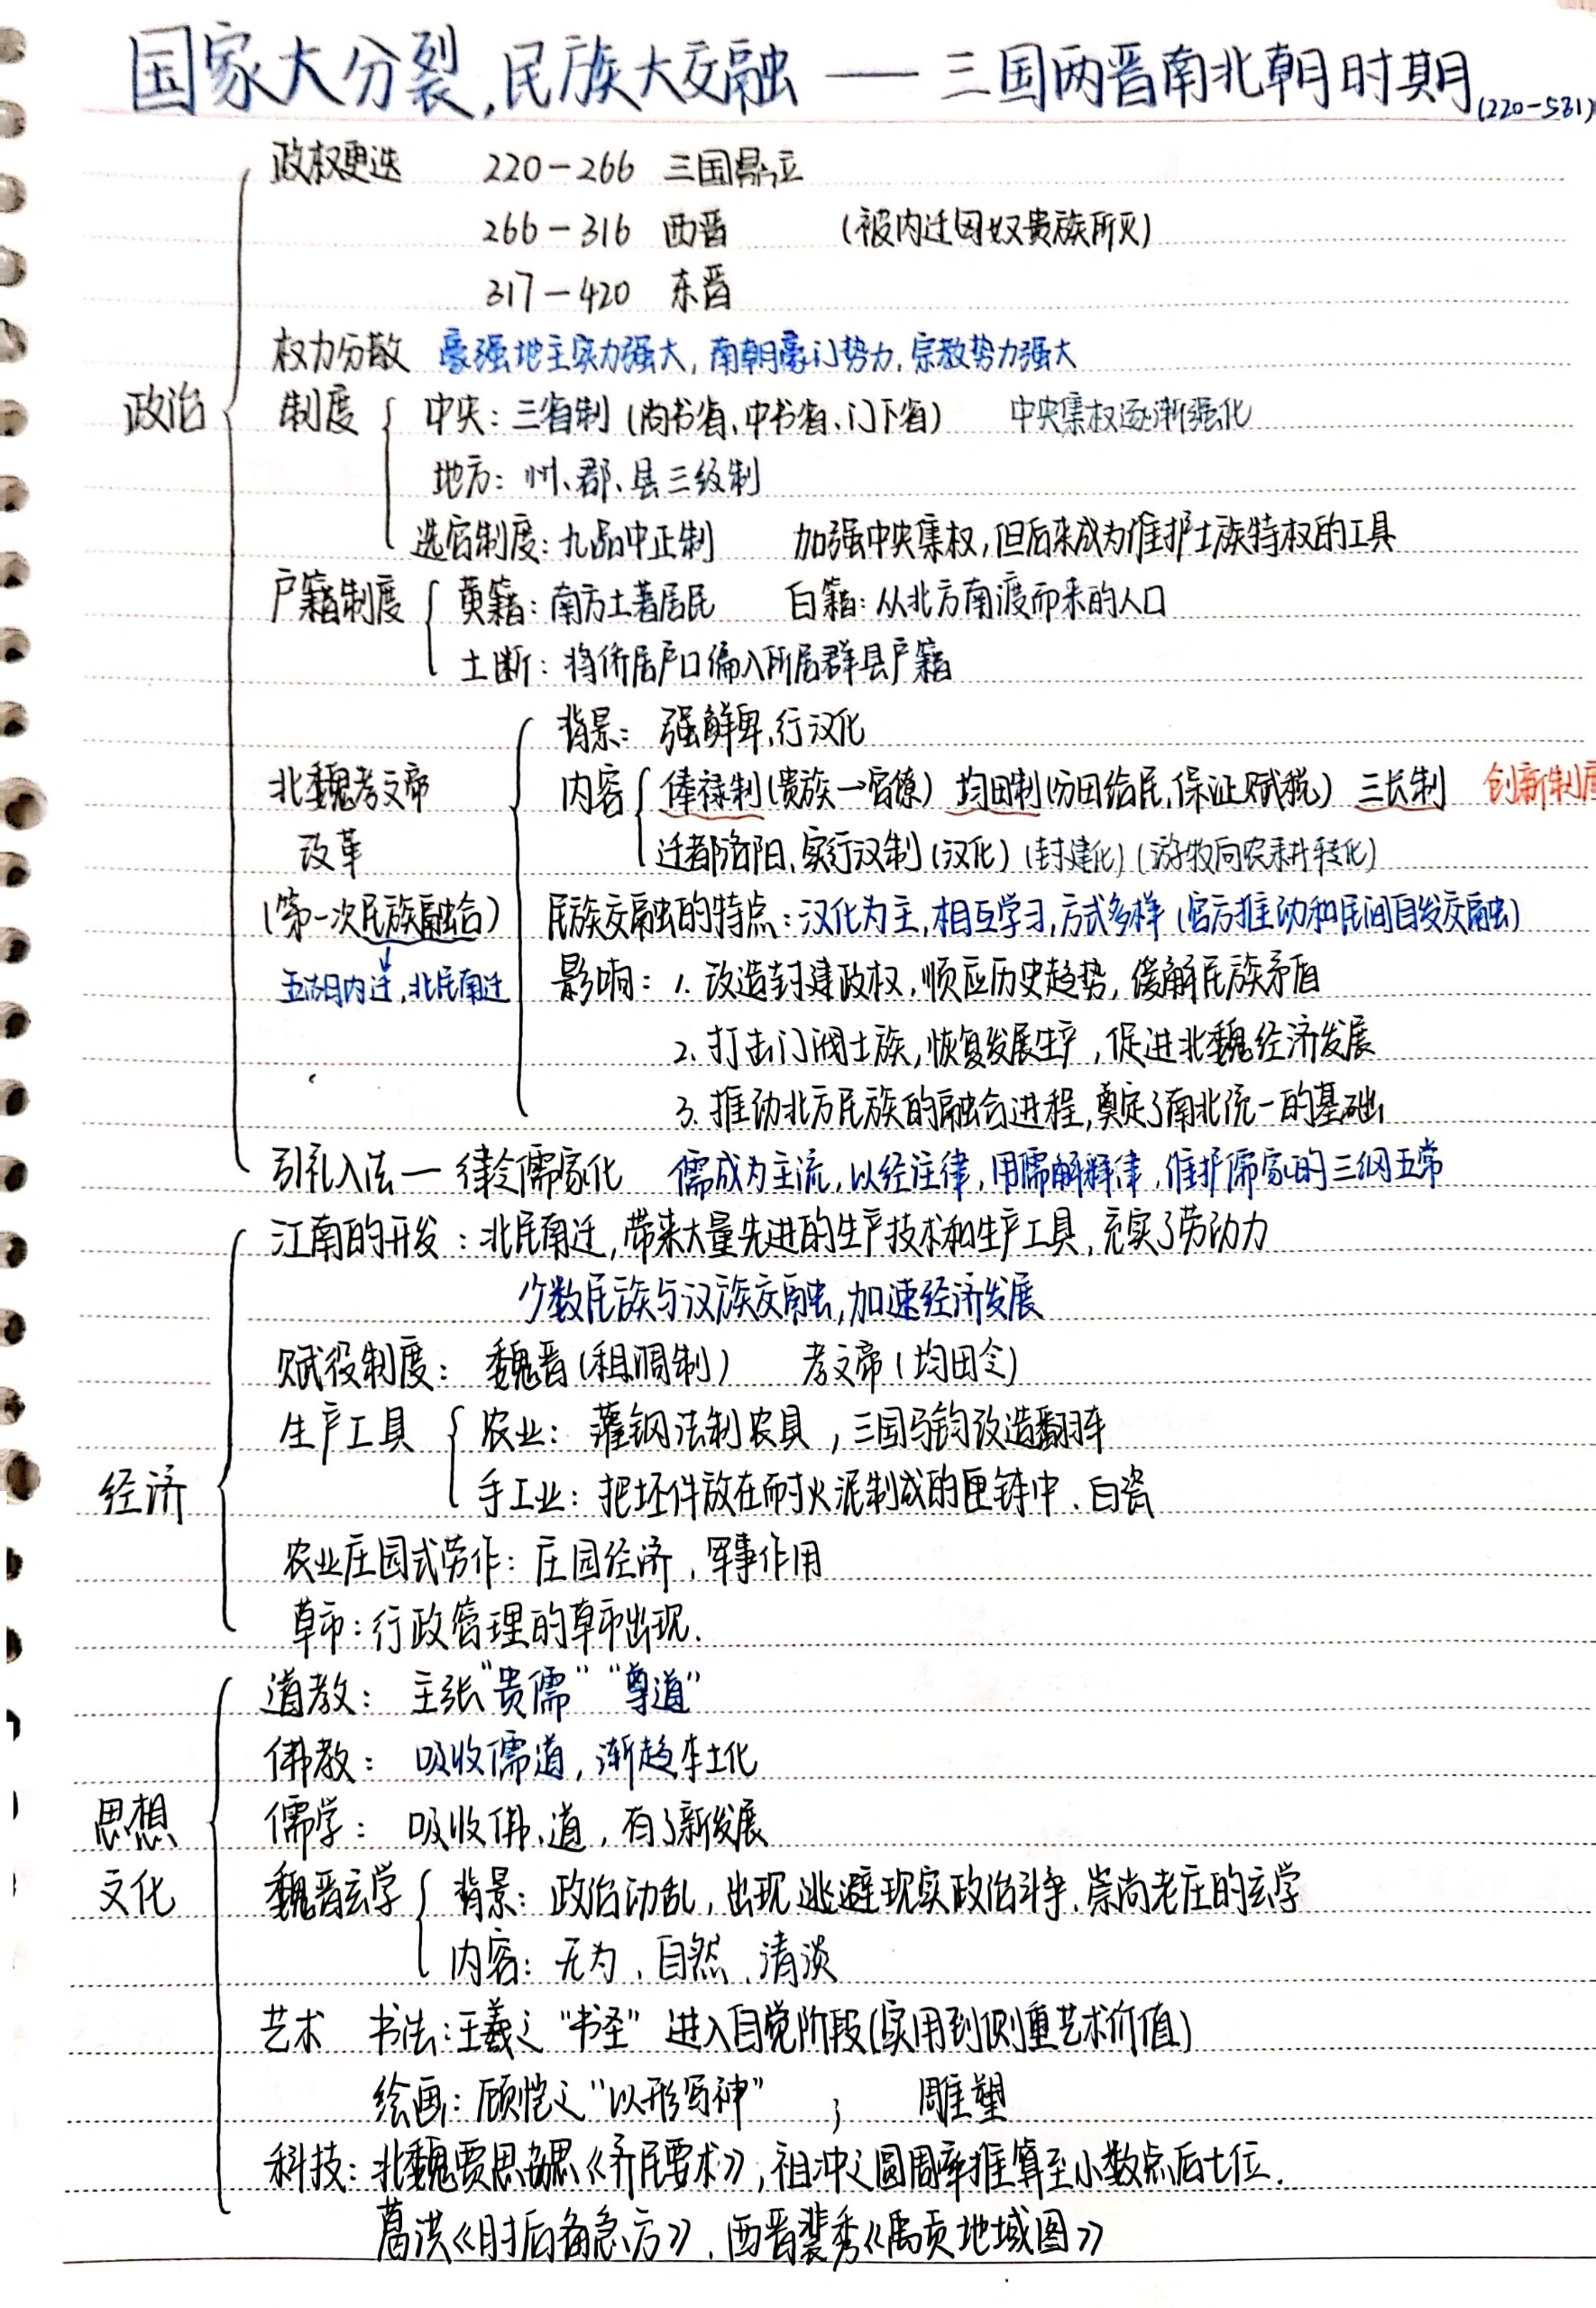 国家大分裂,民族大交融 —— 三国两晋南北朝时期(220-581)
政权更迭 220-266 三国鼎立
266-316 西晋 (被内迁匈奴贵族所灭)
317-420 东晋
权力分散 豪强地主实力强大,南朝豪门势力,宗教势力强大
政治
制度 中央:三省制(尚书省、中书省、门下省) 中央集权逐渐强化
地方:州、郡、县三级制
选官制度:九品中正制 加强中央集权,但后来成为维护士族特权的工具
户籍制度 黄籍:南方土著居民 白籍:从北方南渡而来的人口
土断:将侨居户口偏入所居群县户籍
背景:强鲜卑,行汉化
北魏孝文帝 内容 俸禄制(贵族→官僚) 均田制(分田给民,保证赋税) 三长制 创新制度
改革 迁都洛阳,实行汉制(汉化)(封建化)(游牧向农耕转化)
(第一次民族融合) 民族交融的特点:汉化为主,相互学习,方式多样(官方推动和民间自发交融)
五胡内迁,北民南迁 影响:1.改造封建政权,顺应历史趋势,缓解民族矛盾
2.打击门阀士族,恢复发展生产,促进北魏经济发展
3.推动北方民族的融合进程,奠定了南北统一的基础
引礼入法—律令儒家化 儒成为主流,以经注律,用儒解释律,维护儒家的三纲五常
江南的开发:北民南迁,带来大量先进的生产技术和生产工具,充实了劳动力
少数民族与汉族交融,加速经济发展
赋役制度:魏晋(租调制) 孝文帝(均田令)
生产工具 农业:灌钢法制农具,三国马钧改造翻车
经济 手工业:把坯件放在耐火泥制成的匣钵中、白瓷
农业庄园式劳作:庄园经济,军事作用
草市:行政管理的草市出现.
道教:主张“贵儒”“尊道”
佛教:吸收儒道,渐趋本土化
思想 儒学:吸收佛、道,有了新发展
文化 魏晋玄学 背景:政治动乱,出现逃避现实政治斗争、崇尚老庄的玄学
内容:无为、自然、清淡
艺术 书法:王羲之“书圣”进入自觉阶段(实用到侧重艺术价值)
绘画:顾恺之“以形写神” ; 雕塑
科技:北魏贾思勰《齐民要术》,祖冲之圆周率推算至小数点后七位.
葛洪《肘后备急方》、西晋裴秀《禹贡地域图》